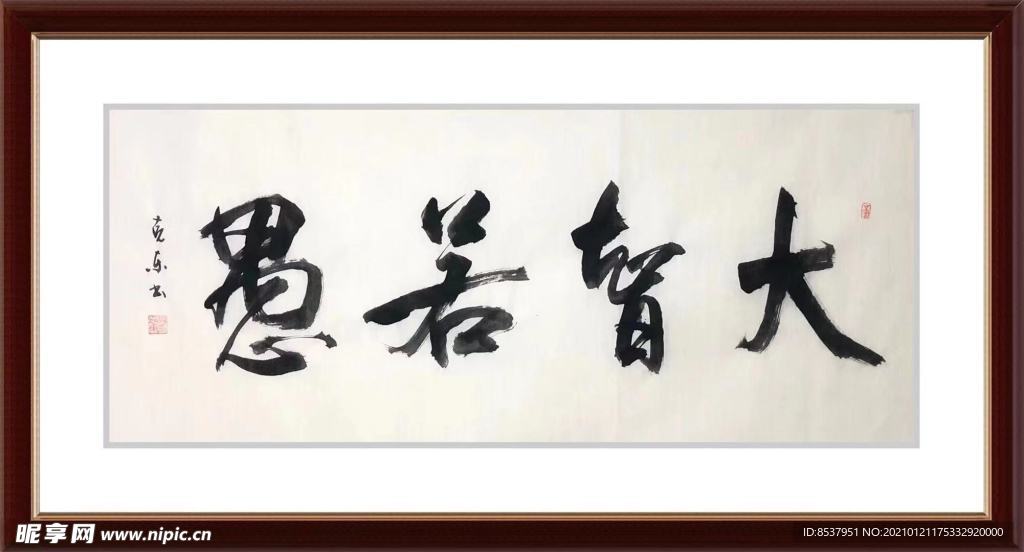 大智若愚
克東书
昵享网 www.nipic.cn
ID:8537951 NO:20210121175332920000